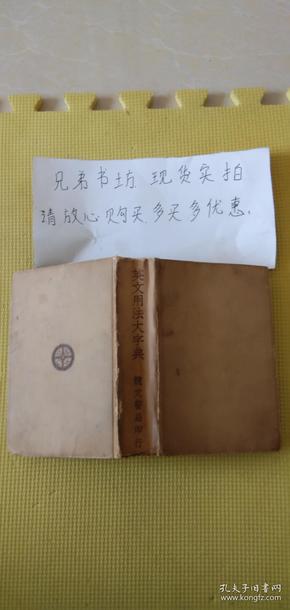 兄弟书坊 现货实拍
请放心购买,多买多优惠.
英文用法大字典
競文書局印行
孔夫子旧书网
www.kongfz.com